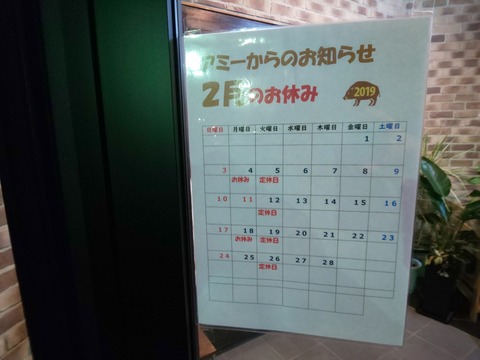 アミーからのお知らせ
2月のお休み
2019
日曜日 月曜日 火曜日 水曜日 木曜日 金曜日 土曜日
1 2
3 4 5 6 7 8 9
お休み 定休日
10 11 12 13 14 15 16
定休日
17 18 19 20 21 22 23
お休み 定休日
24 25 26 27 28
定休日